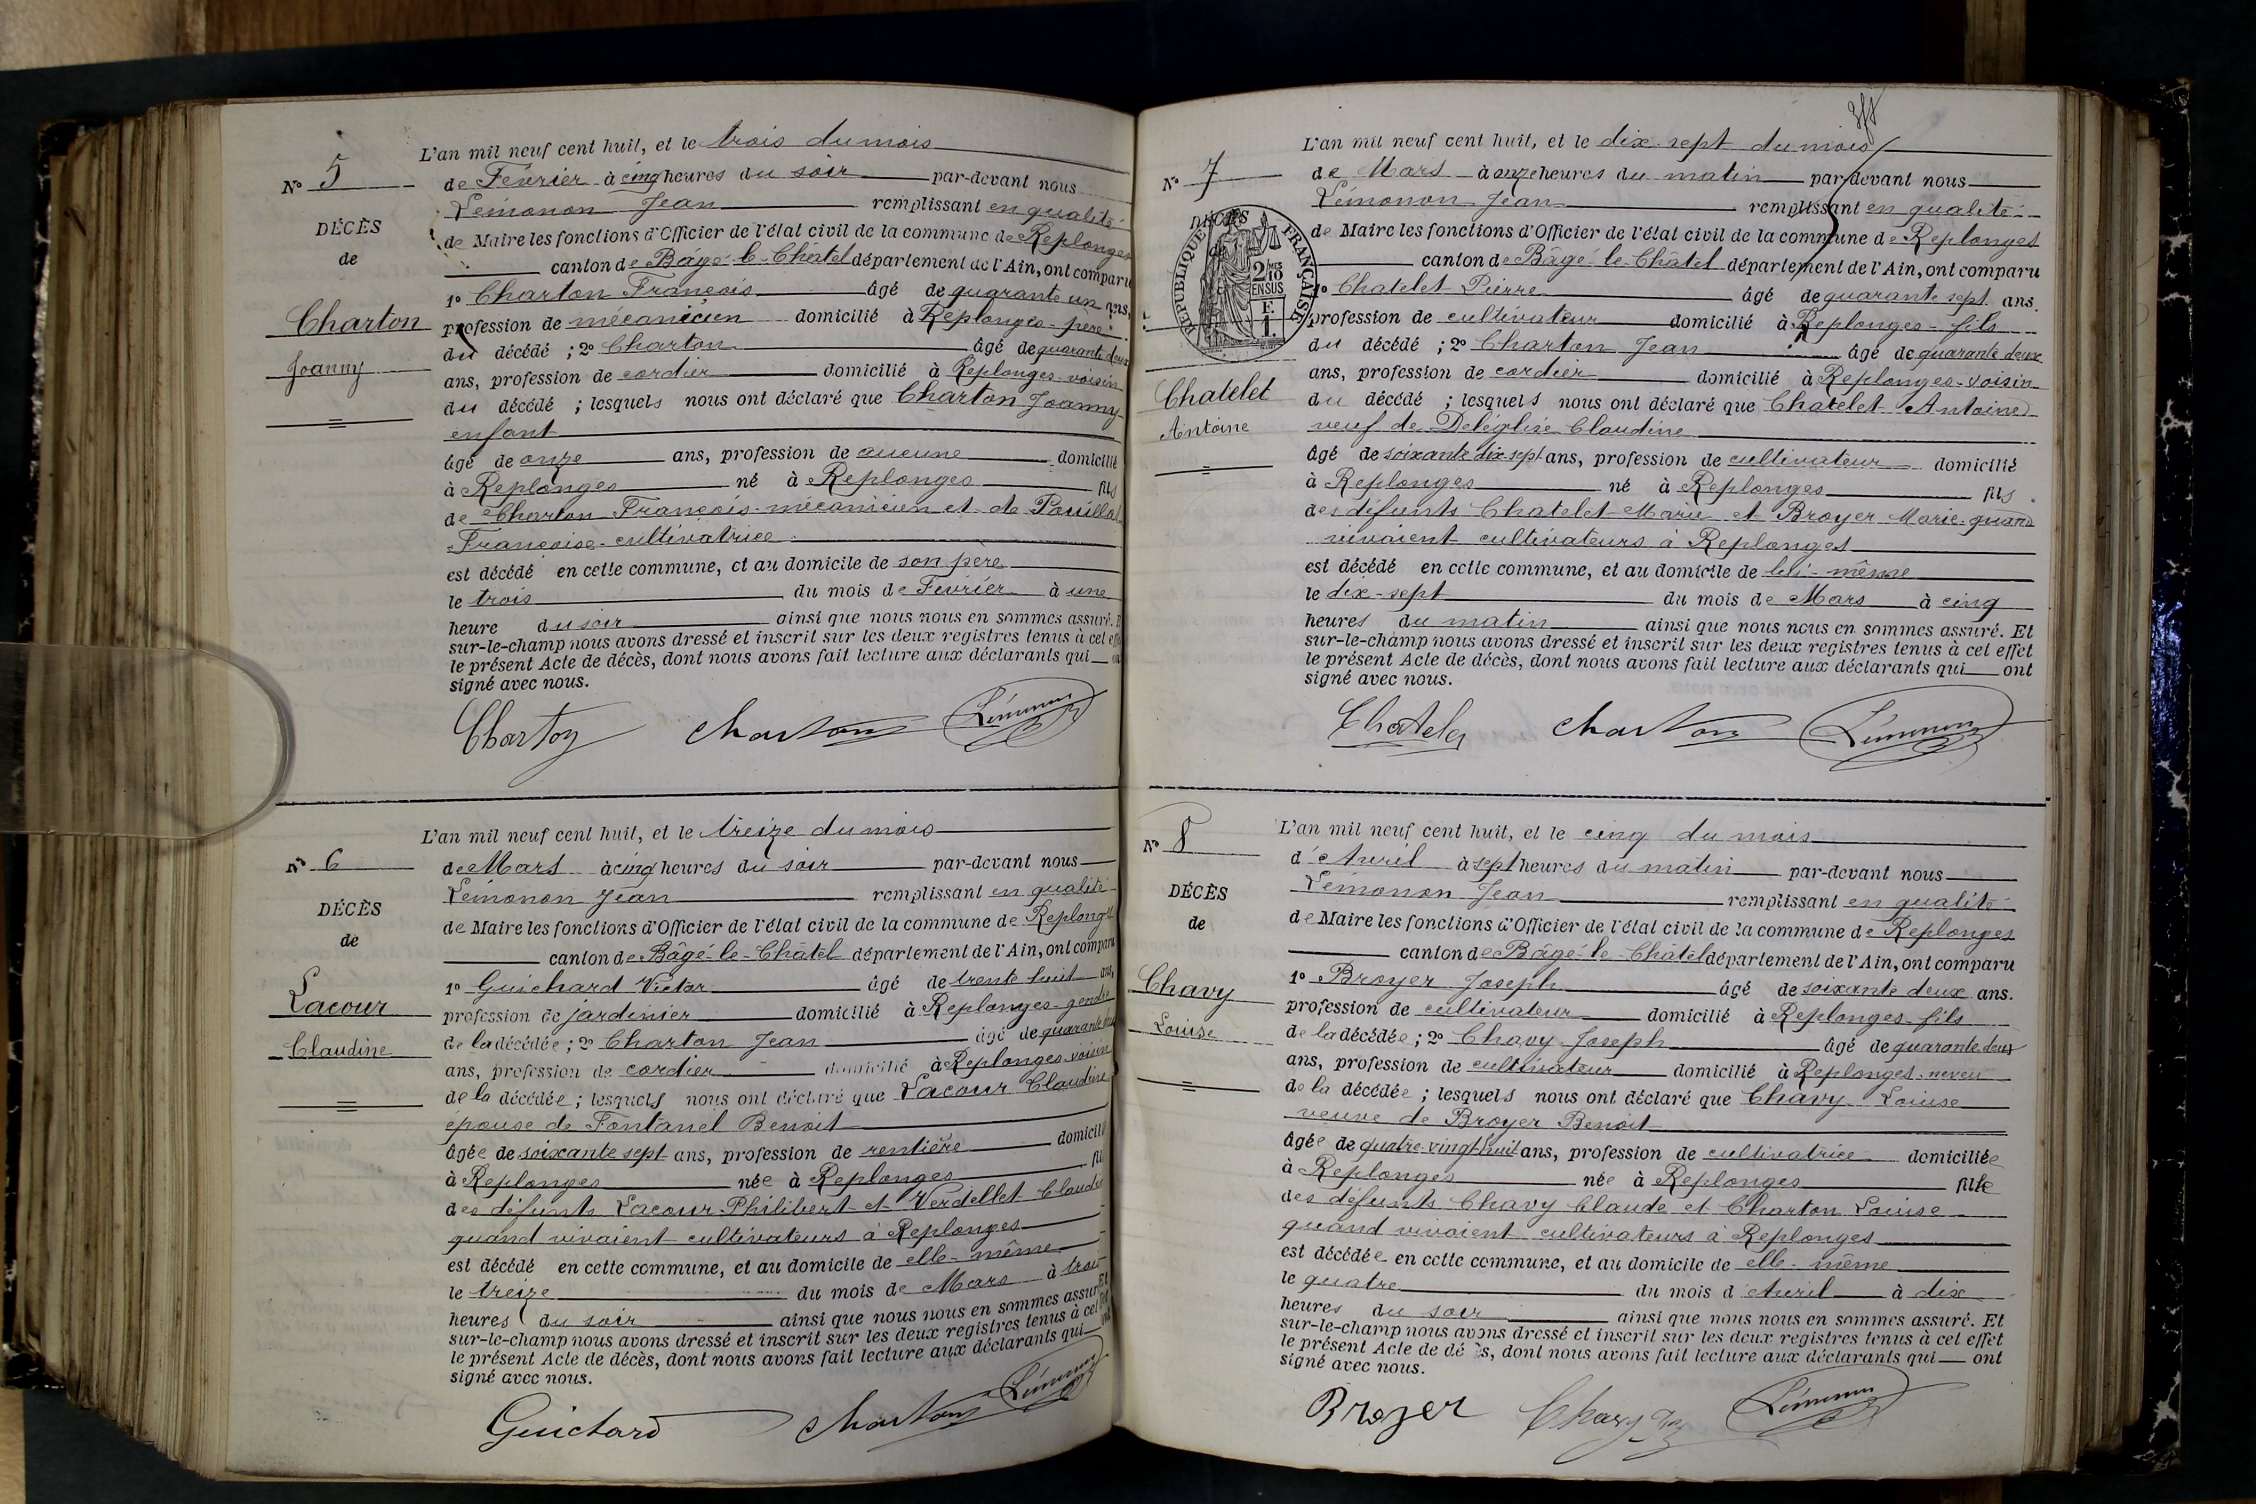 N° 5
DÉCÈS
de
Charton
Joanny
L'an mil neuf cent huit, et le trois du mois
de Février à cinq heures du soir par-devant nous
Lémonon Jean remplissant en qualité
de Maire les fonctions d'Officier de l'état civil de la commune de Replonges
canton de Bâgé-le-Châtel département de l'Ain, ont comparu
1° Charton François âgé de quarante un ans,
profession de mécanicien domicilié à Replonges - père
du décédé ; 2° Charton âgé de quarante deux
ans, profession de cordier domicilié à Replonges - voisin
du décédé ; lesquels nous ont déclaré que Charton Joanny
enfant
âgé de onze ans, profession de aucune domicilié
à Replonges né à Replonges fils
de Charton François mécanicien et de
Françoise - cultivatrice
est décédé en cette commune, et au domicile de son père
le trois du mois de Février à une
heure du soir ainsi que nous nous en sommes assuré.
sur-le-champ nous avons dressé et inscrit sur les deux registres tenus à cet
le présent Acte de décès, dont nous avons fait lecture aux déclarants qui
signé avec nous.
Charton Charton Lémonon
N° 6
DÉCÈS
de
Lacour
Claudine
L'an mil neuf cent huit, et le treize du mois
de Mars à cinq heures du soir par-devant nous
Lémonon Jean remplissant en qualité
de Maire les fonctions d'Officier de l'état civil de la commune de Replonges
canton de Bâgé-le-Châtel département de l'Ain, ont comparu
1° Guichard Victor âgé de trente huit ans,
profession de jardinier domicilié à Replonges - gendre
de la décédée ; 2° Charton Jean âgé de quarante deux
ans, profession de cordier domicilié à Replonges - voisin
de la décédée ; lesquels nous ont déclaré que Lacour Claudine
épouse de Fontanel Benoit
âgée de soixante sept ans, profession de rentière domicilié
à Replonges née à Replonges
des défunts Lacour Philibert et Verdellet Claudine
quand vivaient cultivateurs à Replonges
est décédé en cette commune, et au domicile de elle-même
le treize du mois de Mars à trois
heures du soir ainsi que nous nous en sommes assuré. Et
sur-le-champ nous avons dressé et inscrit sur les deux registres tenus à cet
le présent Acte de décès, dont nous avons fait lecture aux déclarants qui
signé avec nous.
Guichard Charton Lémonon
N° 7
DÉCÈS
de
RÉPUBLIQUE FRANÇAISE
2/10 EN SUS
F. 1.
Chatelet
Antoine
L'an mil neuf cent huit, et le dix-sept du mois
de Mars à onze heures du matin par-devant nous
Lémonon Jean remplissant en qualité
de Maire les fonctions d'Officier de l'état civil de la commune de Replonges
canton de Bâgé-le-Châtel département de l'Ain, ont comparu
1° Chatelet Pierre âgé de quarante sept ans.
profession de cultivateur domicilié à Replonges - fils
du décédé ; 2° Charton Jean âgé de quarante deux
ans, profession de cordier domicilié à Replonges - voisin
du décédé ; lesquels nous ont déclaré que Chatelet Antoine
veuf de Deléglise Claudine
âgé de soixante dix sept ans, profession de cultivateur domicilié
à Replonges né à Replonges fils
des défunts Chatelet Marie et Broyer Marie - quand
vivaient cultivateurs à Replonges
est décédé en cette commune, et au domicile de lui-même
le dix-sept du mois de Mars à cinq
heures du matin ainsi que nous nous en sommes assuré. Et
sur-le-champ nous avons dressé et inscrit sur les deux registres tenus à cet effet
le présent Acte de décès, dont nous avons fait lecture aux déclarants qui ont
signé avec nous.
Chatelet Charton Lémonon
N° 8
DÉCÈS
de
Chavy
Louise
L'an mil neuf cent huit, et le cinq du mois
d'Avril à sept heures du matin par-devant nous
Lémonon Jean remplissant en qualité
de Maire les fonctions d'Officier de l'état civil de la commune de Replonges
canton de Bâgé-le-Châtel département de l'Ain, ont comparu
1° Broyer Joseph âgé de soixante deux ans.
profession de cultivateur domicilié à Replonges - fils
de la décédée ; 2° Chavy Joseph âgé de quarante deux
ans, profession de cultivateur domicilié à Replonges - neveu
de la décédée ; lesquels nous ont déclaré que Chavy Louise
veuve de Broyer Benoit
âgée de quatre-vingt-huit ans, profession de cultivatrice domiciliée
à Replonges née à Replonges fille
des défunts Chavy Claude et Charton Louise
quand vivaient cultivateurs à Replonges
est décédée en cette commune, et au domicile de elle-même
le quatre du mois d'Avril à dix
heures du soir ainsi que nous nous en sommes assuré. Et
sur-le-champ nous avons dressé et inscrit sur les deux registres tenus à cet effet
le présent Acte de décès, dont nous avons fait lecture aux déclarants qui ont
signé avec nous.
Broyer Chavy Lémonon